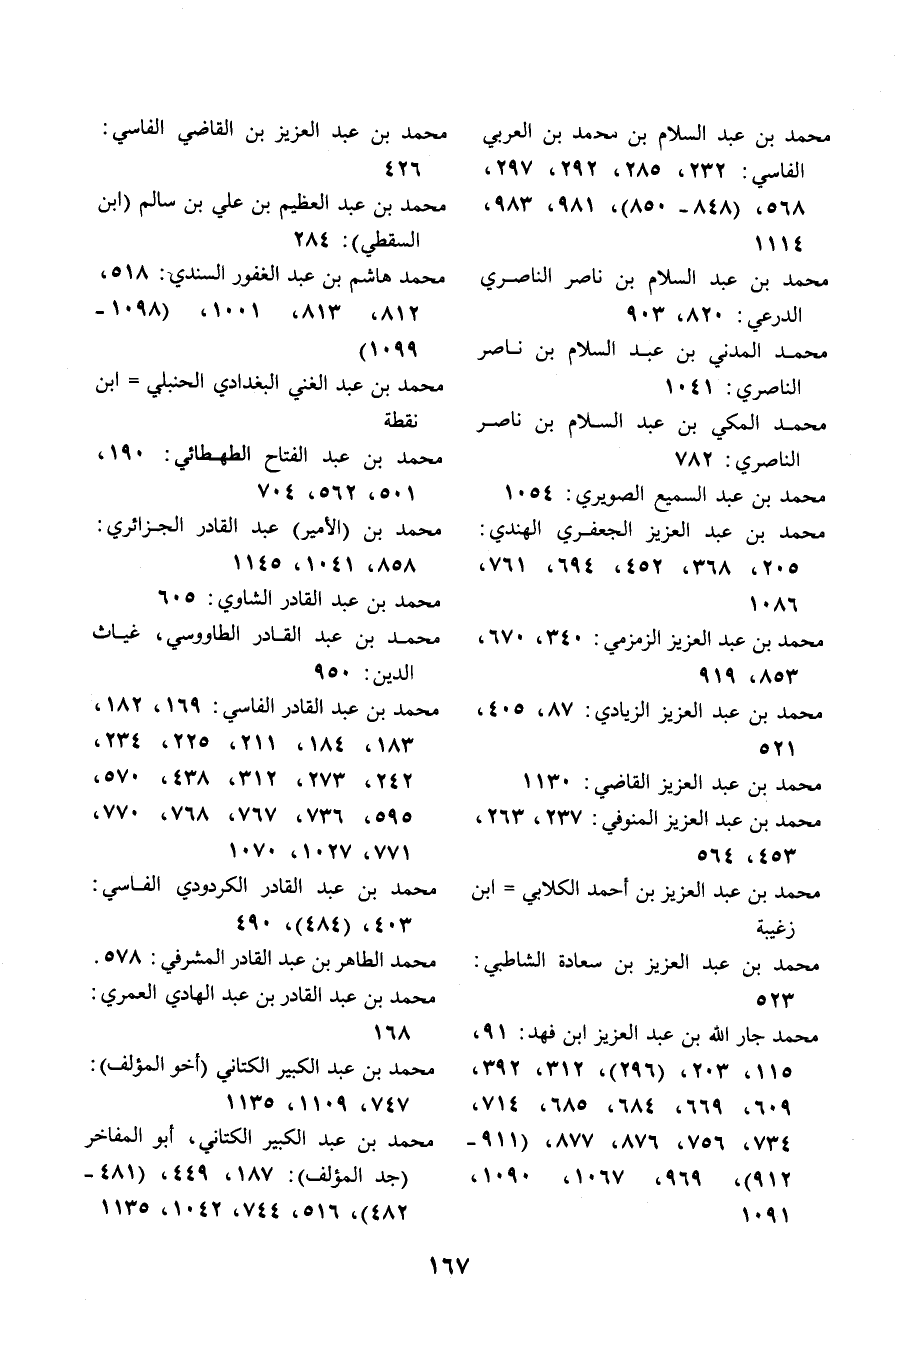 محمد بن عبد السلام بن محمد بن العربي
الفاسي: ٢٣٢، ٢٨٥، ٢٩٢، ٢٩٧،
٥٦٨، (٨٤٨ـ ٨٥٠)، ٩٨١، ٩٨٣،
١١١٤
محمد بن عبد السلام بن ناصر الناصري
الدرعي: ٨٢٠، ٩٠٣
محمد المدني بن عبد السلام بن ناصر
الناصري: ١٠٤١
محمد المكي بن عبد السلام بن ناصر
الناصري: ٧٨٢
محمد بن عبد السميع الصويري: ١٠٥٤
محمد بن عبد العزيز الجعفري الهندي:
٢٠٥، ٣٦٨، ٤٥٢، ٦٩٤، ٧٦١،
١٠٨٦
محمد بن عبد العزيز الزمزمي: ٣٤٠، ٦٧٠،
٨٥٣، ٩١٩
محمد بن عبد العزيز الزيادي: ٨٧، ٤٠٥،
٥٢١
محمد بن عبد العزيز القاضي: ١١٣٠
محمد بن عبد العزيز المنوفي: ٢٣٧، ٢٦٣،
٤٥٣، ٥٦٤
محمد بن عبد العزيز بن أحمد الكلابي = ابن
زغيبة
محمد بن عبد العزيز بن سعادة الشاطبي:
٥٢٣
محمد جار الله بن عبد العزيز ابن فهد: ٩١،
١١٥، ٢٠٣، (٢٩٦)، ٣١٢، ٣٩٢،
٦٠٩، ٦٦٩، ٦٨٤، ٦٨٥، ٧١٤،
٧٣٤، ٧٥٦، ٨٧٦، ٨٧٧، (٩١١ـ
٩١٢)، ٩٦٩، ١٠٦٧، ١٠٩٠،
١٠٩١
محمد بن عبد العزيز بن القاضي الفاسي:
٤٢٦
محمد بن عبد العظيم بن علي بن سالم (ابن
السقطي): ٢٨٤
محمد هاشم بن عبد الغفور السندي: ٥١٨،
٨١٢، ٨١٣، ١٠٠١، (١٠٩٨ـ
١٠٩٩)
محمد بن عبد الغني البغدادي الحنبلي = ابن
نقطة
محمد بن عبد الفتاح الطهطائي: ١٩٠،
٥٠١، ٥٦٢، ٧٠٤
محمد بن (الأمير) عبد القادر الجزائري:
٨٥٨، ١٠٤١، ١١٤٥
محمد بن عبد القادر الشاوي: ٦٠٥
محمد بن عبد القادر الطاووسي، غياث
الدين: ٩٥٠
محمد بن عبد القادر الفاسي: ١٦٩، ١٨٢،
١٨٣، ١٨٤، ٢١١، ٢٢٥، ٢٣٤،
٢٤٢، ٢٧٣، ٣١٢، ٤٣٨، ٥٧٠،
٥٩٥، ٧٣٦، ٧٦٧، ٧٦٨، ٧٧٠،
٧٧١، ١٠٢٧، ١٠٧٠
محمد بن عبد القادر الكردودي الفاسي:
٤٠٣، (٤٨٤)، ٤٩٠
محمد الطاهر بن عبد القادر المشرفي: ٥٧٨.
محمد بن عبد القادر بن عبد الهادي العمري:
١٦٨
محمد بن عبد الكبير الكتاني (أخو المؤلف):
٧٤٧، ١١٠٩، ١١٣٥
محمد بن عبد الكبير الكتاني، أبو المفاخر
(جد المؤلف): ١٨٧، ٤٤٩، (٤٨١ـ
٤٨٢)، ٥١٦، ٧٤٤، ١٠٤٢، ١١٣٥
١٦٧